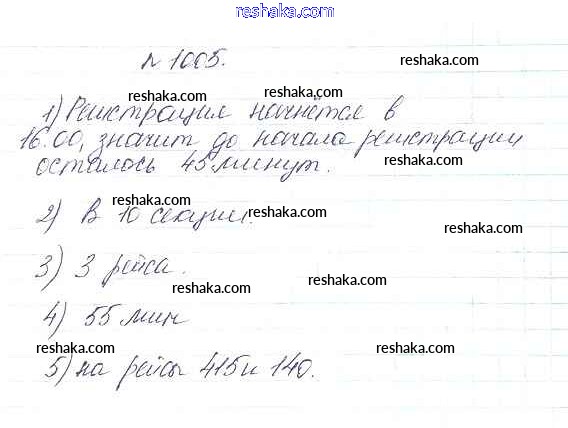 reshaka.com
№ 1005.
reshaka.com
reshaka.com
1) Регистрация начнётся в
16.00, значит до начала регистрации
осталось 45 минут.
reshaka.com
reshaka.com
2) В 10 секции.
reshaka.com
3) 3 рейса.
reshaka.com
reshaka.com
4) 55 мин
reshaka.com
reshaka.com
5) на рейсы 415 и 140.